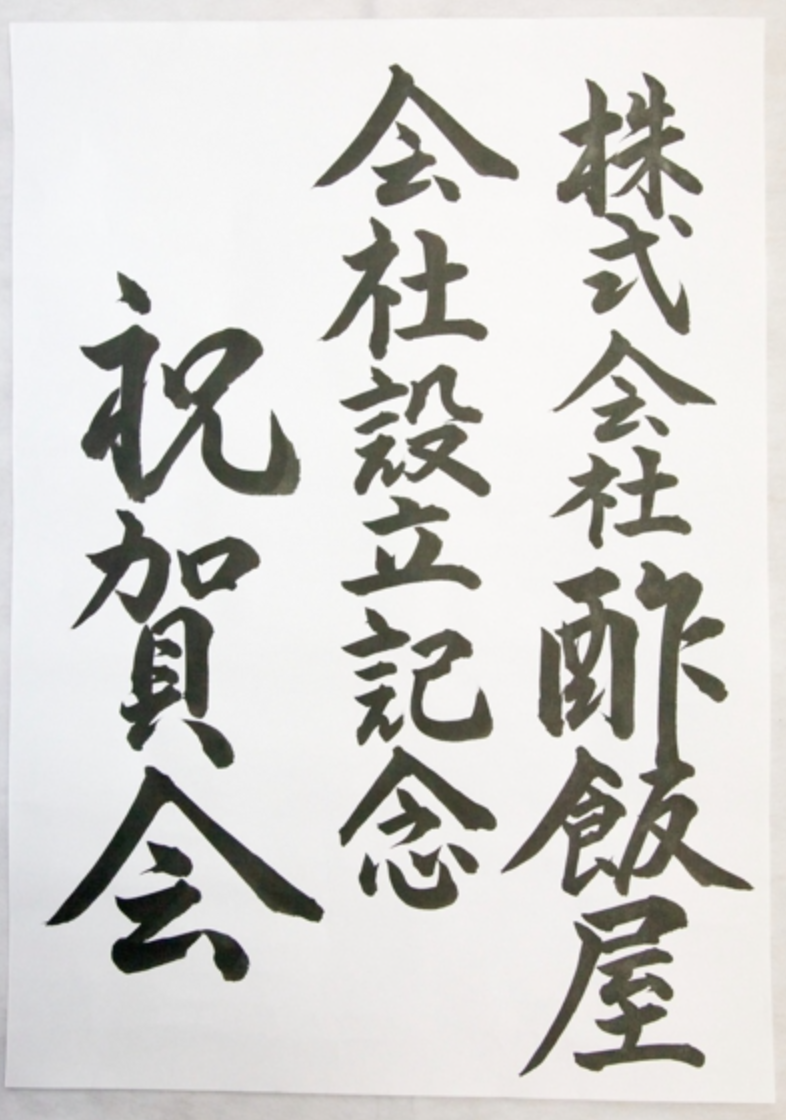 株式会社酢飯屋
会社設立記念
祝賀会